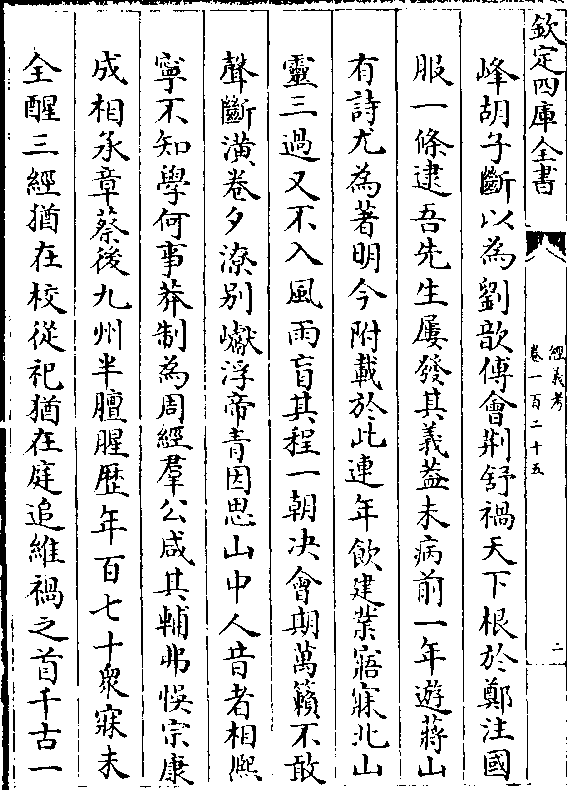 欽定四庫全書
經義考
卷一百二十五
二
峰胡子斷以為劉歆傅會荆舒禍天下根於鄭注國
服一條逮吾先生屢發其義葢未病前一年遊蔣山
有詩尤為著明今附載於此連年飲建業寤寐北山
靈三過又不入風雨盲其程一朝決會期萬籟不敢
聲斷潢卷夕潦别巘浮帝青因思山中人昔者相熈
寧不知學何事莽制為周經羣公咸其輔弗悞宗康
成相承章蔡後九州半膻腥歴年百七十衆寐未
全醒三經猶在校從祀猶在庭追維禍之首千古一